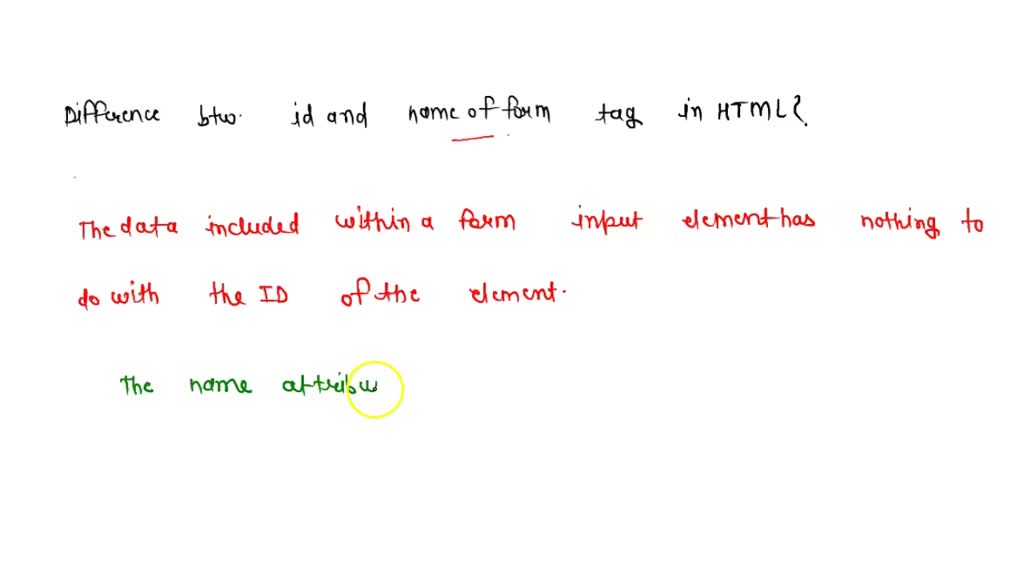 Difference btw. id and name of form tag in HTML?
The data included within a form input element has nothing to
do with the ID of the element.
The name attribu